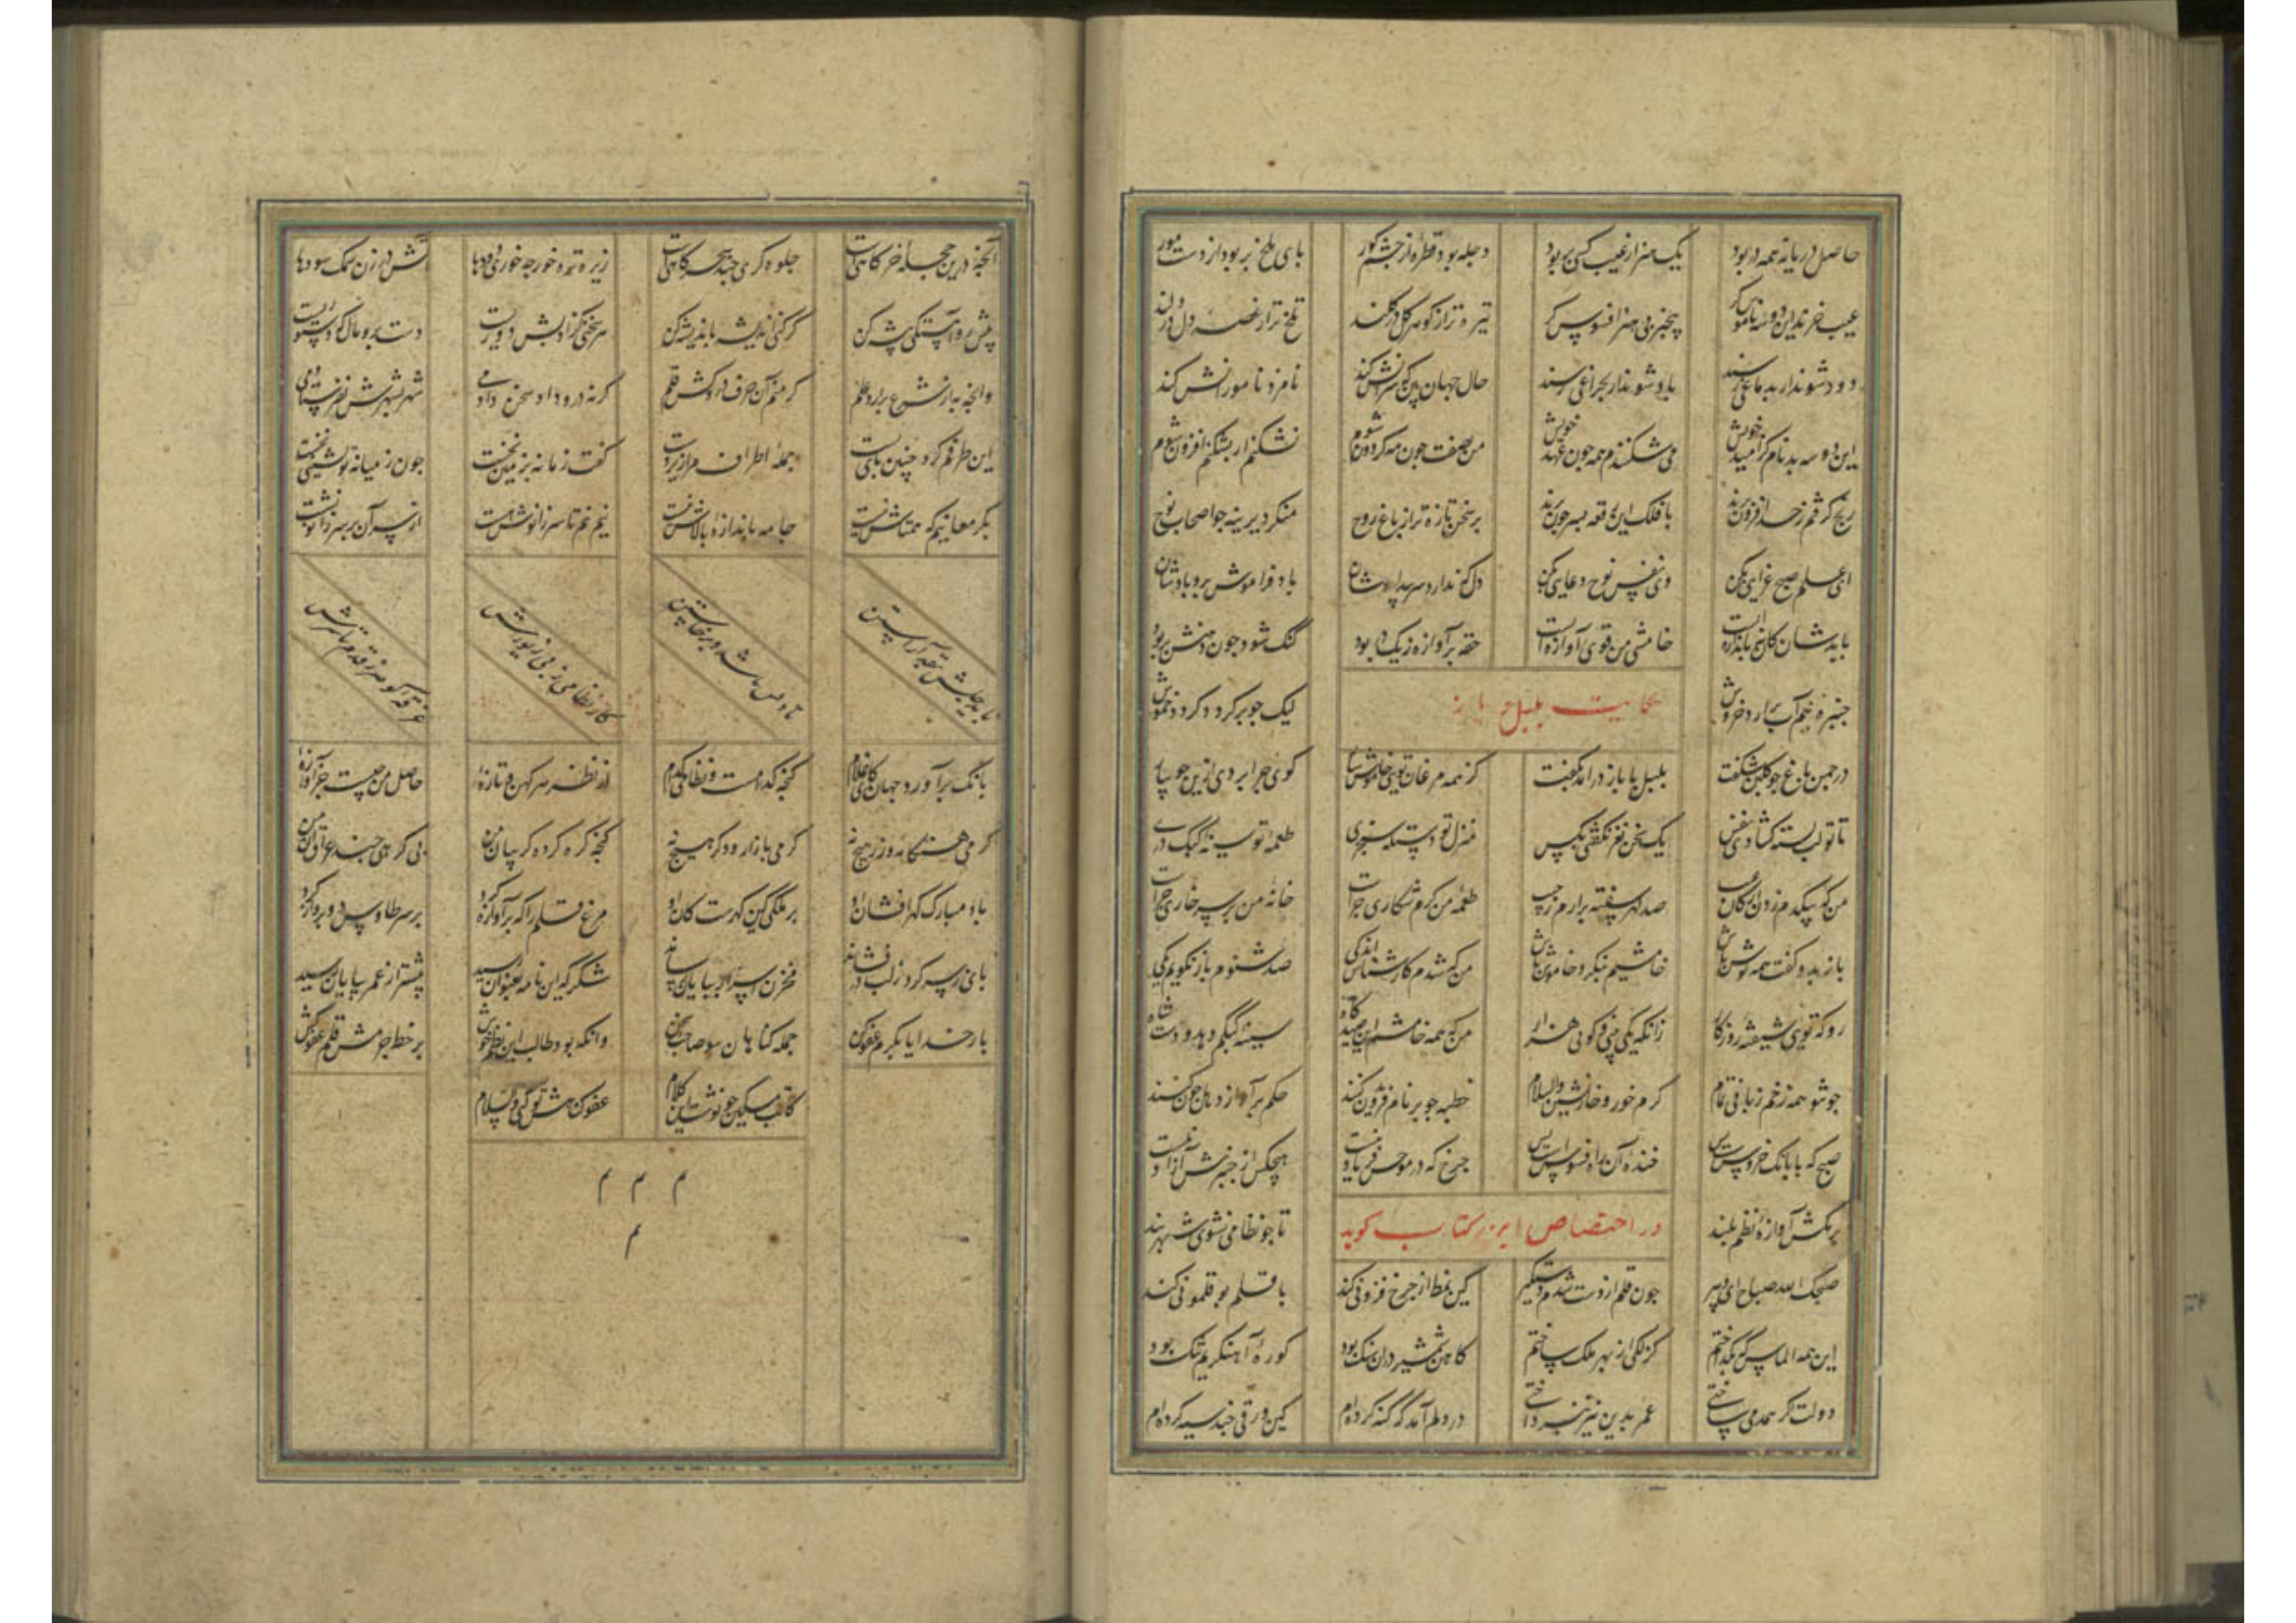 حاصل دریا نه همه در بود یک هنر از عیب کسی پر بود دجله بود قطره از چشم کور پای ملخ پر بود از دست مور
عیب خرند این دو سه ناموس‌گر بیخبر بی هنر افسوس گر تیره تر از گوهر گل در گلند تلخ تر از غصه دل در دلند
دود شوند ار بدماغی رسند باد شوند ار بچراغی رسند حال جهان بین که سرانش کند نامزد و نامورانش کند
این دو سه بدنام کن امید خویش می شکنندم همه چون عهد خویش من بصفت چون مه گردون شوم نشکنم ار بشکنم افزون شوم
رنج گرفتم ز حد افزون برند با فلک این رقعه بسر چون برند بر سخن تازه تر از باغ روح منکر دیرینه چو اصحاب نوح
ای علم صبح غزایی بکن وی نفس نوح دعایی بکن دل که ندارد سر بیدادشان باد فراموش برو یادشان
با بدشان کان نه باندازه است خامشی من قوی آوازه است حقه پرآوازه ز یک در بود گنگ شود چون دهنش پر بود
خنبره نیم آب برآرد خروش لیک چو پر کرد گردد خموش
حکایت بلبل با باز
در چمن باغ چو گلبن شکفت بلبل با باز درآمد بگفت کز همه مرغان تویی خاموش ساز گوی چرا بردی ازین جو بباز
تا تو لب بسته گشادی نفس یک سخن نغز نگفتی بکس منزل تو دستگه سنجری طعمه تو سینه کبک دری
من که بیکدم زدن از کان غیب صد گهر سفته برآرم ز جیب طعمه من کرم شکاری چراست خانه من بر سر خاری چراست
باز بدو گفت همه گوش باش خامشیم بنگر و خاموش باش من که شدم کارشناس اندکی صد شنوم باز نگویم یکی
رو که تویی شیفته روزگار زانکه یکی نکنی و گویی هزار من که همه خامشم این صیدگاه سینه کبکم دهد و دست شاه
چو تو همه زخم زبانی تمام کرم خور و خار نشین والسلام خطبه چو بر نام فریدون کنند حکم بر آواز دهل چون کنند
صبح که با بانگ خروس است و بس خنده آن از ره افسوس است و بس چرخ که در معرض فریاد نیست هیچکس از چنبرش آزاد نیست
بر مکش آوازه نظم بلند تا چو نظامی نشوی شهربند
در اختصاص این کتاب گوید
صبحک الله صباح ای دبیر چون قلم از دست شدم دستگیر کین نمط از چرخ فزونی کند با قلم بوقلمونی کند
این همه الماس که بگداختم گزلکی از بهر ملک ساختم کاهن شمشیر در سنگ بود کوره آهنگریم تنگ بود
دولت اگر همدمی ساختی عمر بدین نیز نپرداختی در دلم آمد که گنه کرده ام کین ورقی چند سیه کرده ام
آنچه درین حجله خرگاهی است جلوه گری چند سحرگاهی است زیره ترنده خورچه خوری دودها آتش در زن نمک سودها
پیش رو آهستگی پیشه کن گر کنی اندیشه باندیشه کن هر سخنی کز ادبش دوریست دست برو مال که دستوریست
وانچه نه از شرع برآرد علم گر منم آن حرف درو کش قلم گرنه درو داد سخن دادمی شهر بشهرش نفرستادمی
این طرفم کرد چنین پای بست جمله اطراف مرا زیردست گفت زمانه نه زمینی بخت چون ز میان نه نشینی بخت
بکر معانیم که همتاش نیست جامه باندازه بالاش نیست نیم تنی تا سر زانوش هست از پی آن بر سر زانو نشست
بایدش از حله قد آراستن تا ادبش باشد و برخاستن کار نظامی ز پی زیورش غرقه گوهر ز قدم تا سرش
بانگ برآورد جهان کای غلام گنجه کدامست و نظامی کدام از نظر هر کهن و تازه حاصل من چیست جز آوازه
گرمی هنگامه و زر هیچ نه گرمی بازار ودگر هیچ نه گنجه گره کرده گریبان من بی گرهی چند عراق آن من
باد مبارک گهرافشان او بر ملکی کین گهرست کان او مرغ قلم را که پرآوازه کرد بر سر طاوس دو پر باز کرد
پای ز سر کرد ز لب در فشاند مخزن اسرار بپایان رساند شکر که این نامه بعنوان رسید پیشتر از عمر بپایان رسید
بار خدایا بکرم عفو کن جمله گناهان صاحب سخن وانکه بود طالب این نظم خوش بر خط جرمش قلم عفو کش
کاتب مسکین چو نوشت این کلام عفو کن جرمش تو کریم والسلام
م م م
م